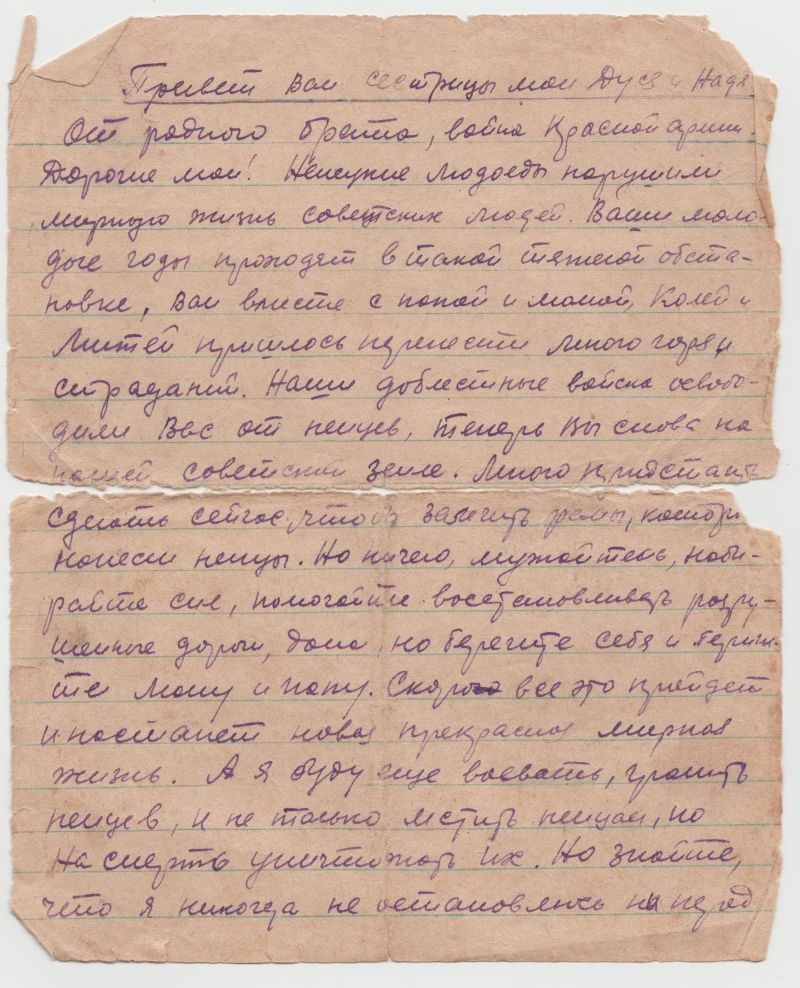 Привет Вам сестрицы мои Дуся и Надя
От родного брата, война Красной армии.
Дорогие мои! Немецкие людоеды нарушили
мирную жизнь советских людей. Ваши моло-
дые годы проходят в такой тяжелой обста-
новке, Вам вместе с папой и мамой, Колей и
Митей пришлось перенести много горя и
страданий. Наши доблестные войска освобо-
дили Вас от немцев, теперь Вы снова на
нашей советской земле. Много придстаить
сделать сейчас, чтобы залечить раны, которы
нанесли немцы. Но ничего, мужайтесь, наби-
райте сил, помогайте восстановливать разру-
шенные дороги, дома, но берегите себя и береги-
те маму и папу. Скоро все это пройдет
и настанет новая прекрасная мирная
жизнь. А я буду еще воевать, громить
немцев, и не только мстить немцам, но
На смерть уничтожать их. Но знайте,
что я никогда не остановлюсь ни перед